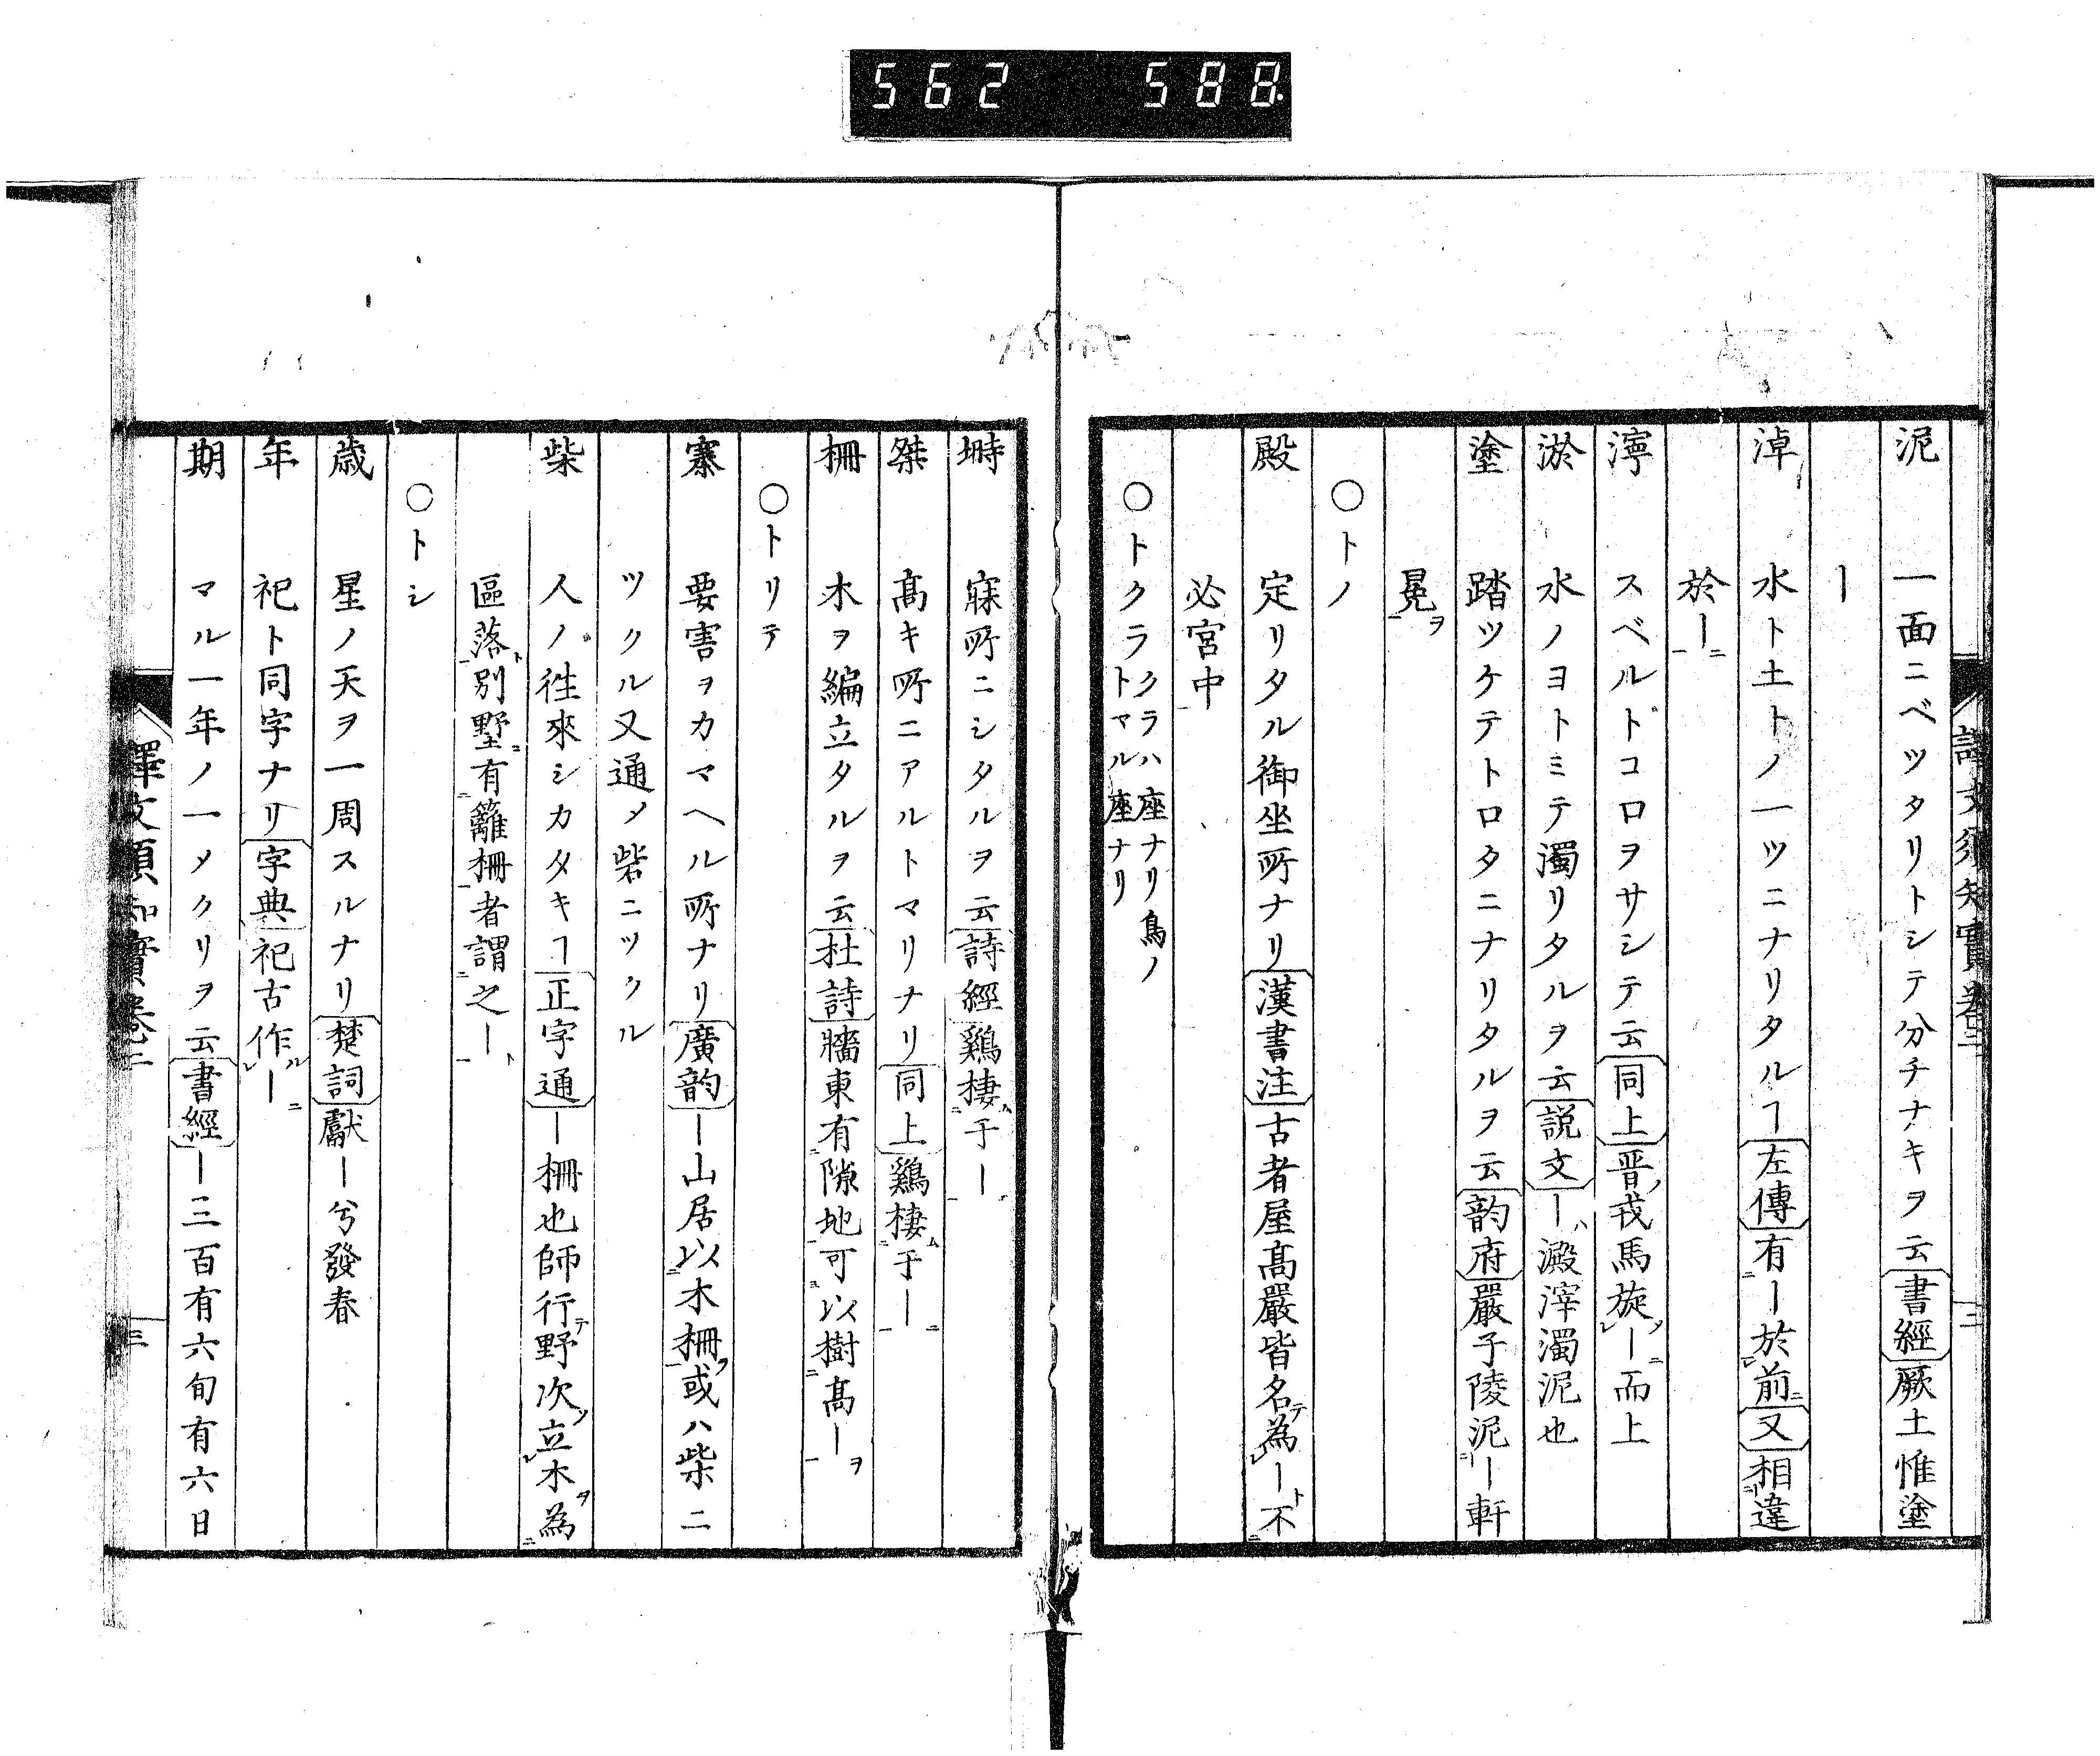 562 588.
泥 一面ニベツタリトシテ分チナキヲ云書經厥土惟塗
ー
淖 水ト土トノ一ツニナリタルヿ左傳有ー於前又相違
於ー
濘 スベルドコロヲサシテ云同上晋戎馬旋ー而上
淤 水ノヨトミテ濁リタルヲ云説文ー澱滓濁泥也
塗 踏ツケテトロタニナリタルヲ云韵府嚴子陵泥ー軒
冕ヲ
○トノ
殿 定リタル御坐所ナリ漢書注古者屋髙嚴皆名為ー不
必宮中
○トクラ クラハ座ナリ鳥ノ
トマル座ナリ
塒 寐所ニシタルヲ云詩經鷄棲于ー
桀 髙キ所ニアルトマリナリ同上鷄棲于ー
柵 木ヲ編立タルヲ云杜詩牆東有隙地可以樹髙ー
○トリテ
寨 要害ヲカマヘル所ナリ廣韵ー山居以木柵或ハ柴ニ
ツクル又通メ砦ニツクル
柴 人ノ徃來シカタキヿ正字通ー柵也師行野次立木為
區落別墅有籬柵者謂之ー
○トシ
歳 星ノ天ヲ一周スルナリ楚詞獻ー兮發春
年 祀ト同字ナリ字典祀古作ー
期 マル一年ノ一メクリヲ云書經ー三百有六旬有六日
譯文須知實卷二
三